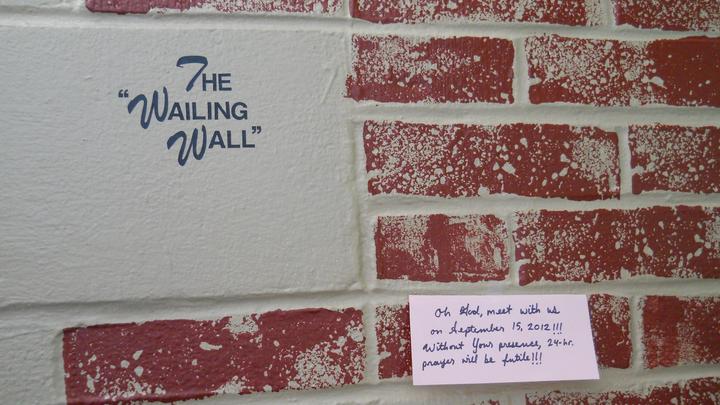 THE
"WAILING
WALL"
Oh God, meet with us
on September 15, 2012!!!
Without Your presence, 24-hr.
prayer will be futile!!!